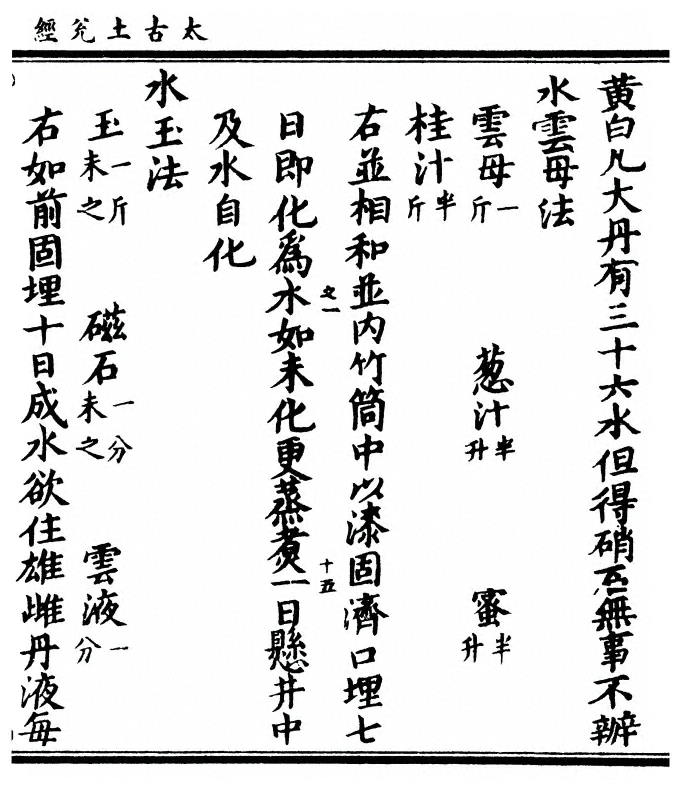 太古土兊經
黃白凡大丹有三十六水但得硝無事不辦
水雲母法
雲母一斤 葱汁半升 蜜半升
桂汁半斤
右並相和並內竹筒中以漆固濟口埋七
之一 十五
日即化爲水如未化更蒸煮一日懸井中
及水自化
水玉法
玉一斤末之 磁石一分末之 雲液一分
右如前固埋十日成水欲住雄雌丹液每